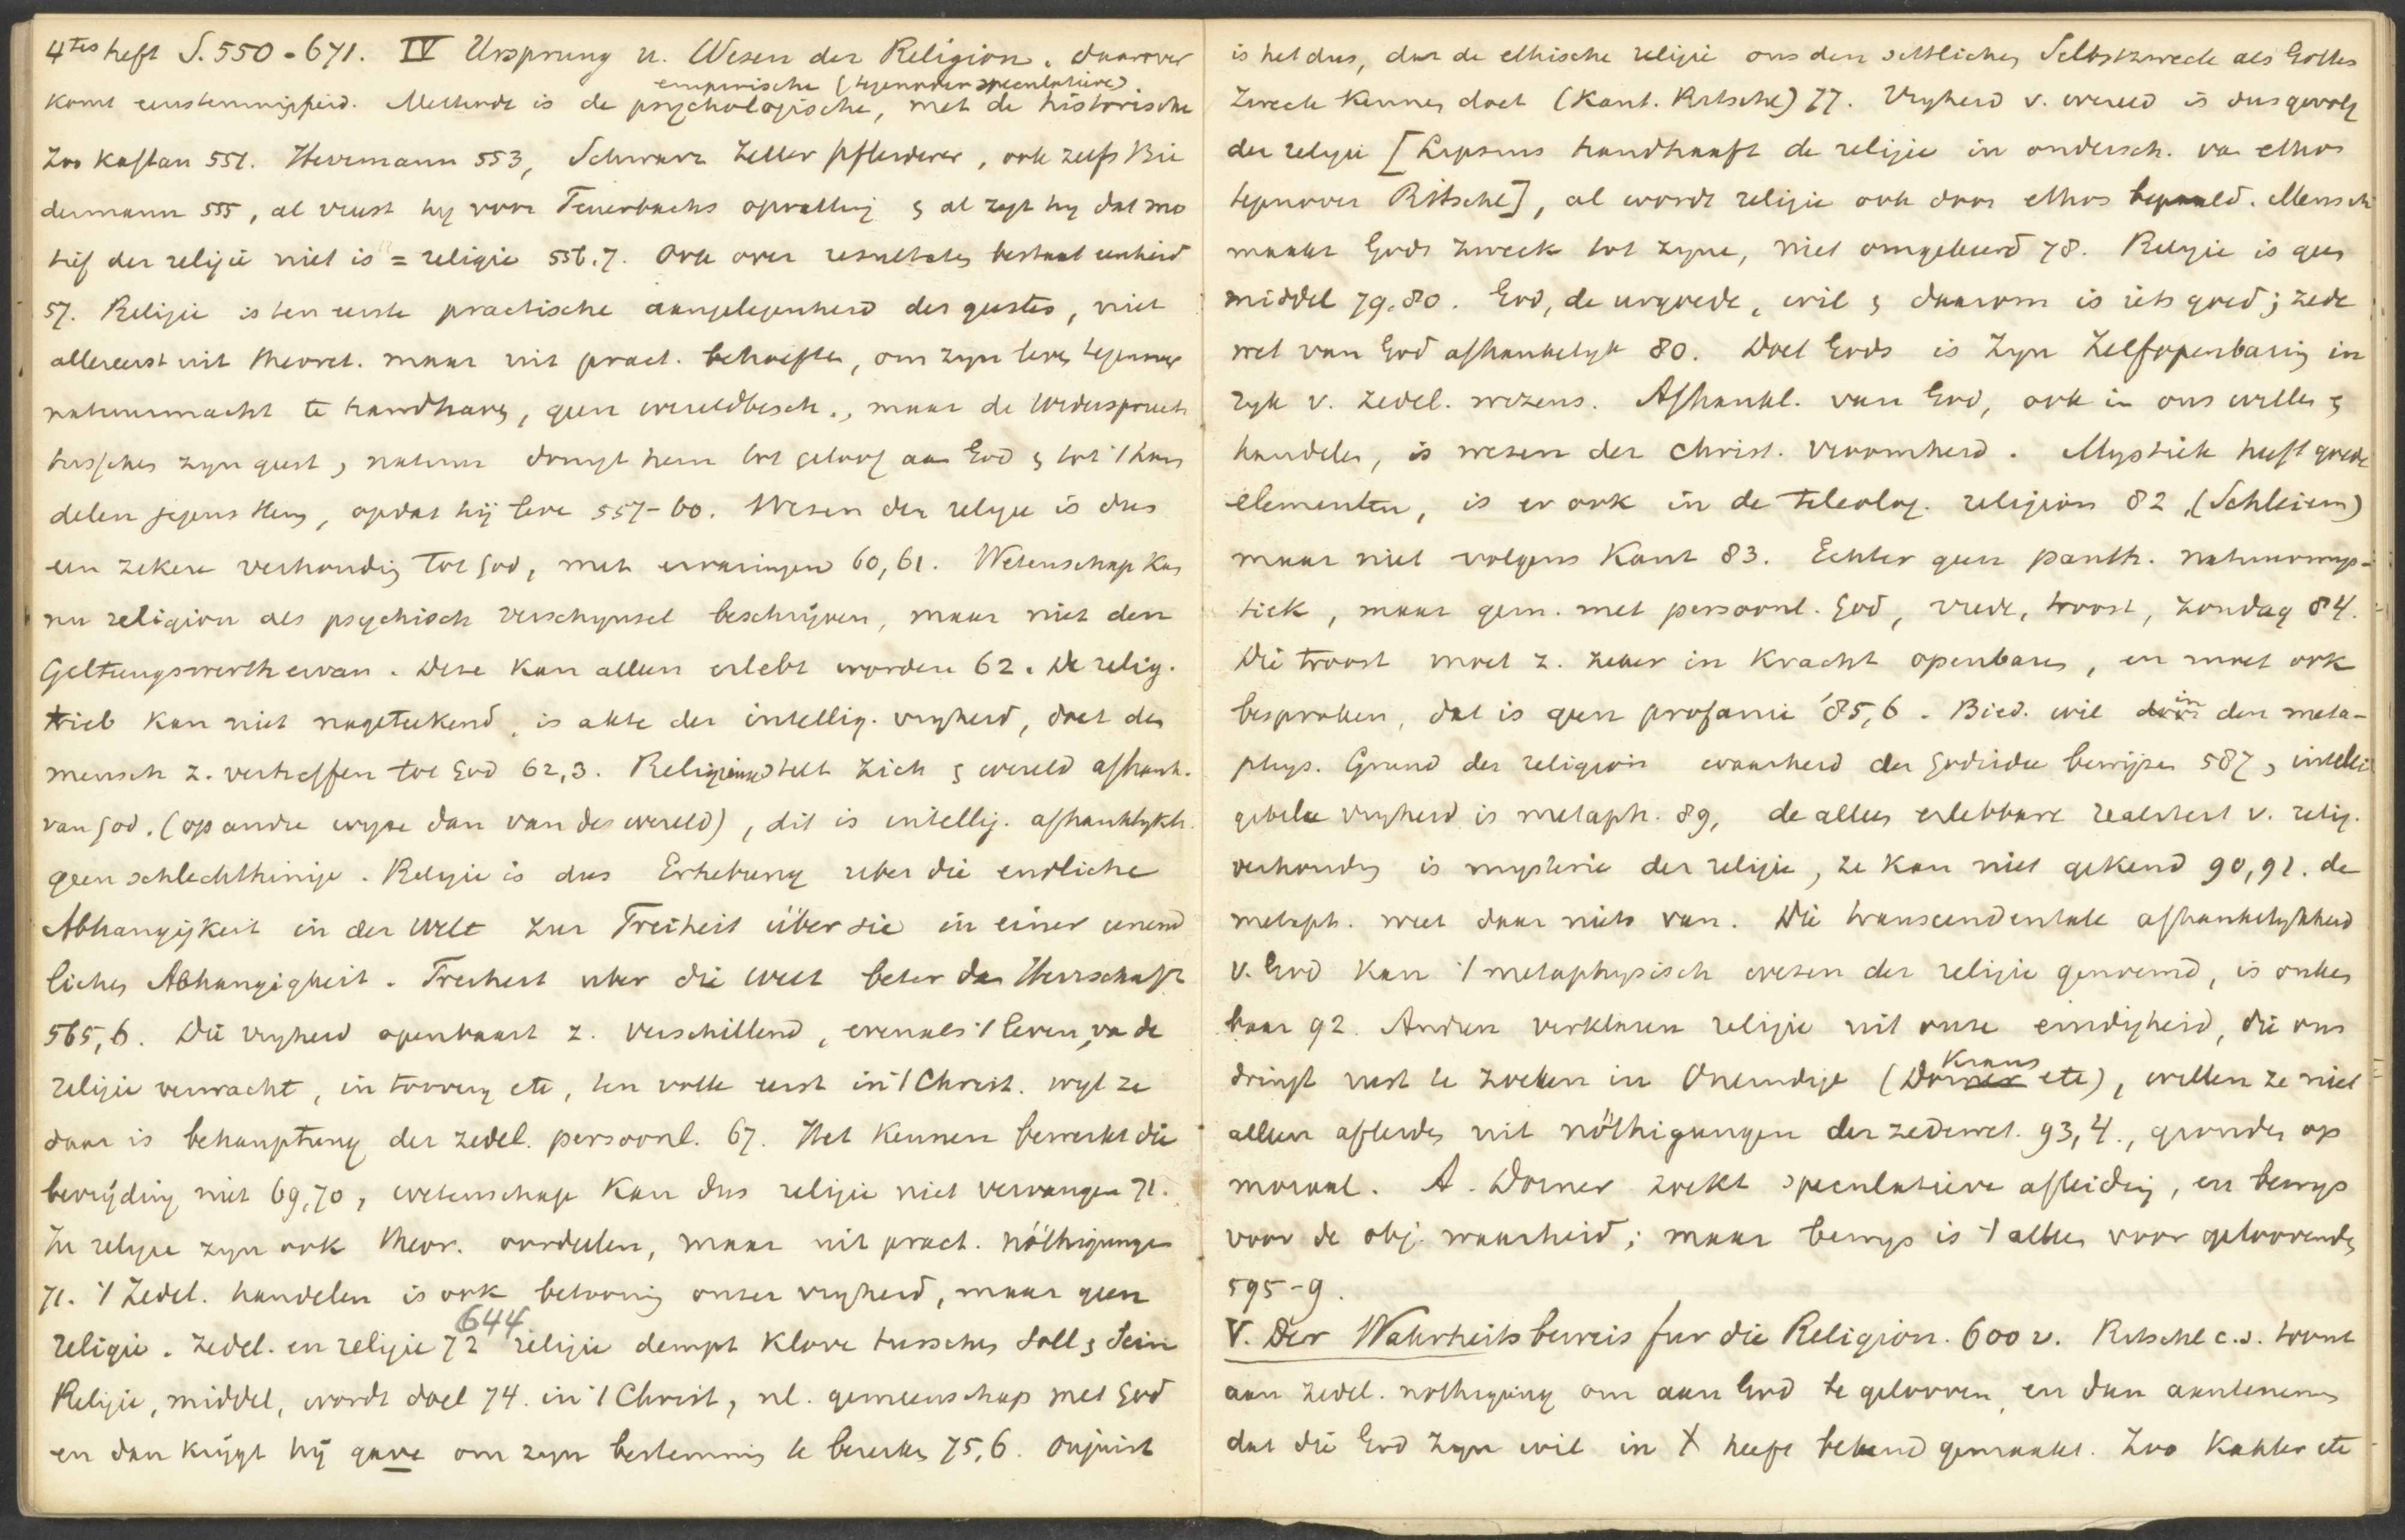 4tes heft S. 550-671. IV Ursprung u. Wesen der Religion. daarover
empirische (tegenover speculatieve).
komt eenstemmigheid. Methode is de psychologische, met de historische
Zoo Kaftan 551. Herrmann 553, Schwarz Zeller Pfleiderer, ook zelfs Bie
dermann 555, al vreest hy voor Feuerbachs opvatting & al zegt hy dat mo
tief der religie niet is = religie 556.7. Ook over resultaten bestaat eenheid
57. Religie is ten eerste practische aangelegenheid des geestes, niet
allereerst uit theoret. maar uit pract. behoefte, om zyn leven tegenover
natuurmacht te handhaven, geen wereldbesch., maar de Widerspruch
tusschen zyn geest & natuur dringt hem tot geloof aan God & tot 't han
delen jegens Hem, opdat hij leve 557-60. Wezen der religie is dus
een zekere verhouding tot God, met ervaringen 60,61. Wetenschap kan
nu religion als psychisch verschynsel beschrijven, maar niet den
Geltungswerth ervan. Deze kan alleen erlebt worden 62. De relig.
trieb kan niet nageteekend, is akte der intellig. vryheid, doet den
mensch z. verheffen tot God 62,3. Religieuse stelt zich & wereld afhank.
van God. (op andre wyze dan van des wereld), dit is intellig. afhanklykh.
geen schlechthinige. Religie is dus Erhebung uber die endliche
Abhangigkeit in der Welt zur Freiheit über sie in einer unend
lichen Abhangigheit. Freiheit uber die Welt beter dan Herrschaft
565,6. Die vryheid openbaart z. verschillend, evenals 't leven, van de
religie verwacht, in toovery etc, ten volle eerst in 't Christ. wyl ze
daar is behauptung der zedel. persoonl. 67. Het Kennen bewerkt die
bevrijding niet 69,70, wetenschap kan dus religie niet vervangen 71.
In religie zyn ook theor. oordeelen, maar uit pract. nöthigungen
71. 't Zedel. handelen is ook betooning onzer vryheid, maar geen
644
religie. Zedel. en religie 72 religie dempt klove tusschen Soll & Sein
Religie, middel, wordt doel 74. in 't Christ, nl. gemeenschap met God
en dan krijgt hij gave om zyn bestemming te bereiken 75,6. Onjuist
is het dus, dat de ethische religie ons den sittlichen Selbstzweck als Gottes
Zweck kennen doet (Kant. Ritschl) 77. Vryheid v. wereld is dus gevolg
der religie [Lipsius handhaaft de religie in ondersch. van ethos
tegenover Ritschl], al wordt religie ook door ethos bepaald. Mensch
maakt Gods zweck tot zyne, niet omgekeerd 78. Religie is geen
middel 79.80. God, de urgoede, wil & daarom is iets goed; zede
wet van God afhankelyk 80. Doel Gods is Zyn Zelfopenbaring in
ryk v. zedel. wezens. Afhankl. van God, ook in ons willen &
handelen, is wezen der Christ. vroomheid. Mystiek heeft goede
elementen, is er ook in de teleolog. religion 82, (Schleierm)
maar niet volgens Kant 83. Echter geen panth. natuurmys-
tiek, maar gem. met persoonl. God, vrede, troost, zondag 84.
Die troost moet z. zeker in kracht openbaren, en moet ook
besproken, dat is geen profanie 585,6. Bied. wil in den meta-
phys. Grund der religion waarheid der godsidee bewijzen 587, intelli
gibele vryheid is metaph. 89, de alleen erlebbare realiteit v. relig.
verhouding is mysterie der religie, ze kan niet gekend 90,91. de
metaph. weet daar niets van. Die transcendentale afhankelykheid
v. God kan 't metaphysisch wezen der religie genoemd, is onken
baar 92. Andren verklaren religie uit onze eindigheid, die ons
Kraus
dringt rust te zoeken in Oneindige (Dorner etc), willen ze niet
alleen afleiden uit nöthigungen der zedewet. 93,4., gronden op
moraal. A. Dorner zoekt speculatieve afleiding, en bewys
voor de obj. waarheid; maar bewys is 't alleen voor geloovenden
595-9.
V. Der Wahrheitsbeweis fur die Religion. 600 v. Ritschl c.s. toont
aan zedel. nothigung om aan God te gelooven, en dan aantenemen
dat die God zyn wil in X heeft bekend gemaakt. Zoo Kahler etc